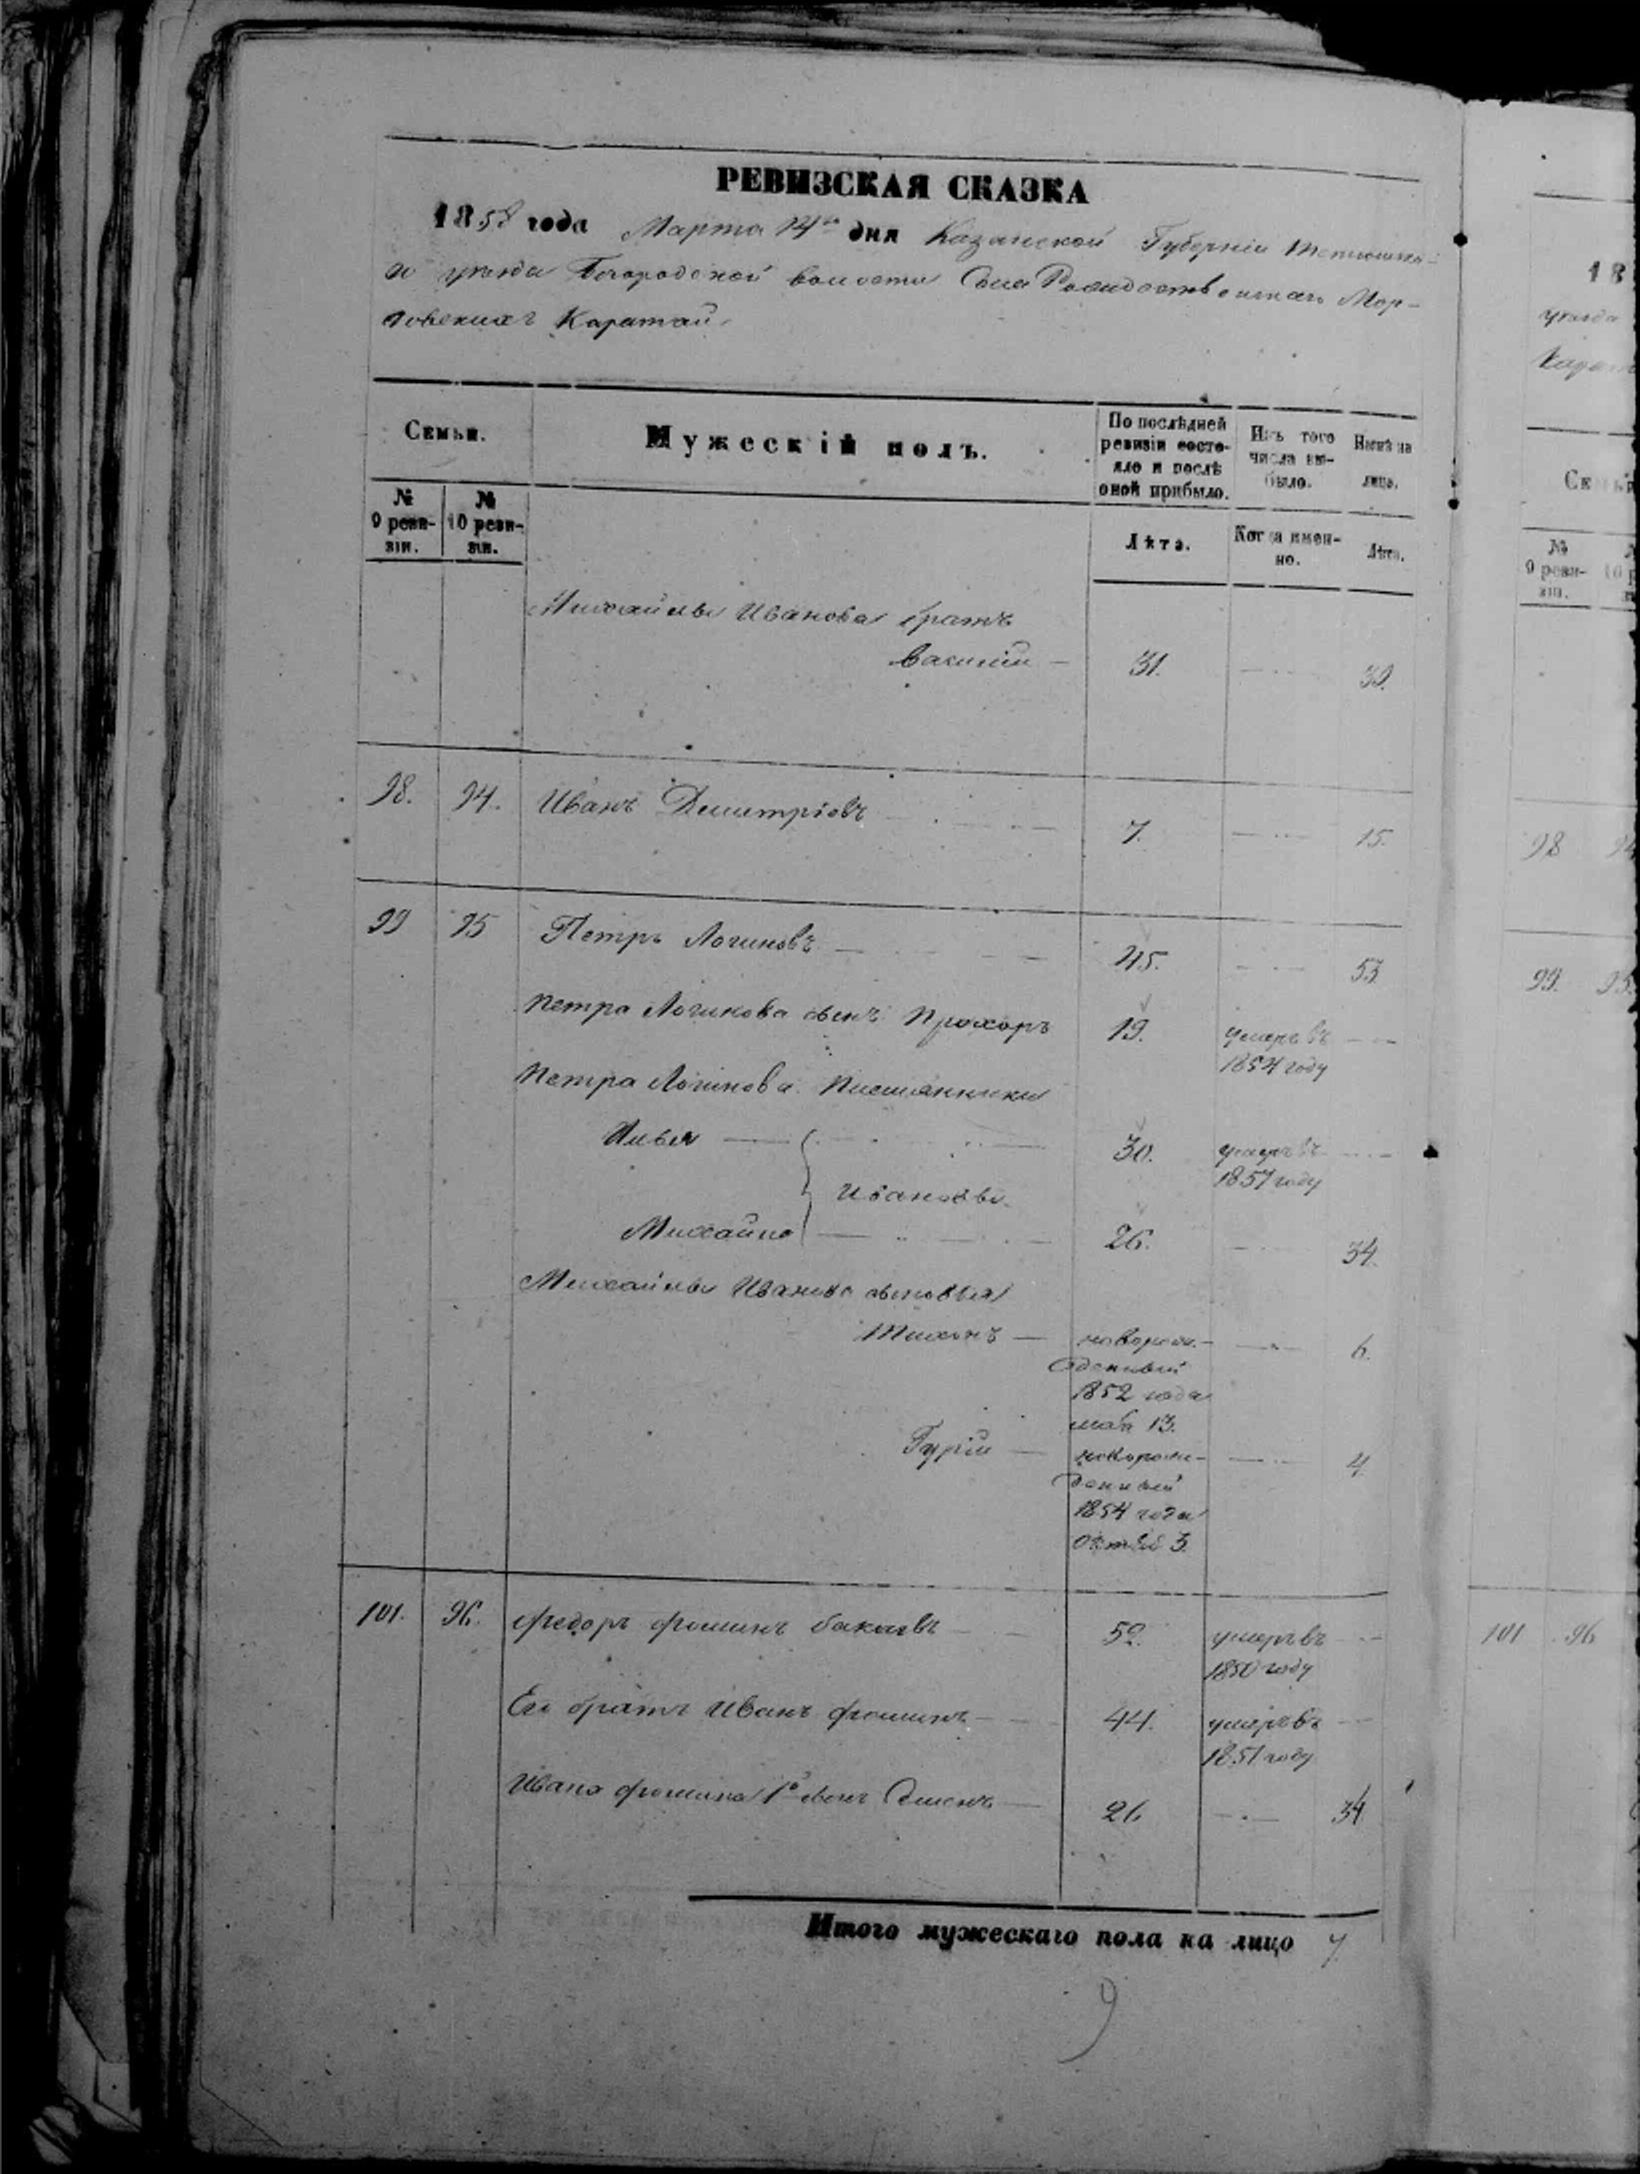 РЕВИЗСКАЯ СКАЗКА
1858 года Марта 14го дня Казанской Губерніи Тетюшска-
го уезда Богородской волости Села Рождественскаго Мор-
довскихъ Каратай
Семьи.
Мужескій полъ.
По послѣдней ревизіи состо-
яло и послѣ оной прибыло.
Изъ того числа вы-
было.
Нынѣ на лицо.
№ 9 реви-
зіи.
№ 10 реви-
зіи.
Лѣта.
Когда имен-
но.
Лѣта.
Михайлы Иванова братъ
Василій — 31. 39.
98. 94. Иванъ Димитріевъ 7. 15.
99 95 Петръ Логиновъ 45. 53
Петра Логинова сынъ Прохоръ 19. умеръ въ
1854 году
Петра Логинова племянники
Илья 30. умеръ въ
1857 году
Ивановы
Михайло 26. 34.
Михайлы Иванова сыновья
Тихонъ — новорож-
денный 6.
1852 года
маія 13.
Гурій — новорож-
денный 4
1854 года
Октяб 3.
101. 96. Федоръ Фоминъ Бакаевъ 52. умеръ въ
1850 году
Его братъ Иванъ Фоминъ 44. умеръ въ
1851 году
Ивана Фомина 1й сынъ Семенъ 26 34
Итого мужескаго пола на лицо 7.
9
18
уезда
Карат
Семьи
№ 9 реви-
зіи.
98 94
99. 95.
101 96